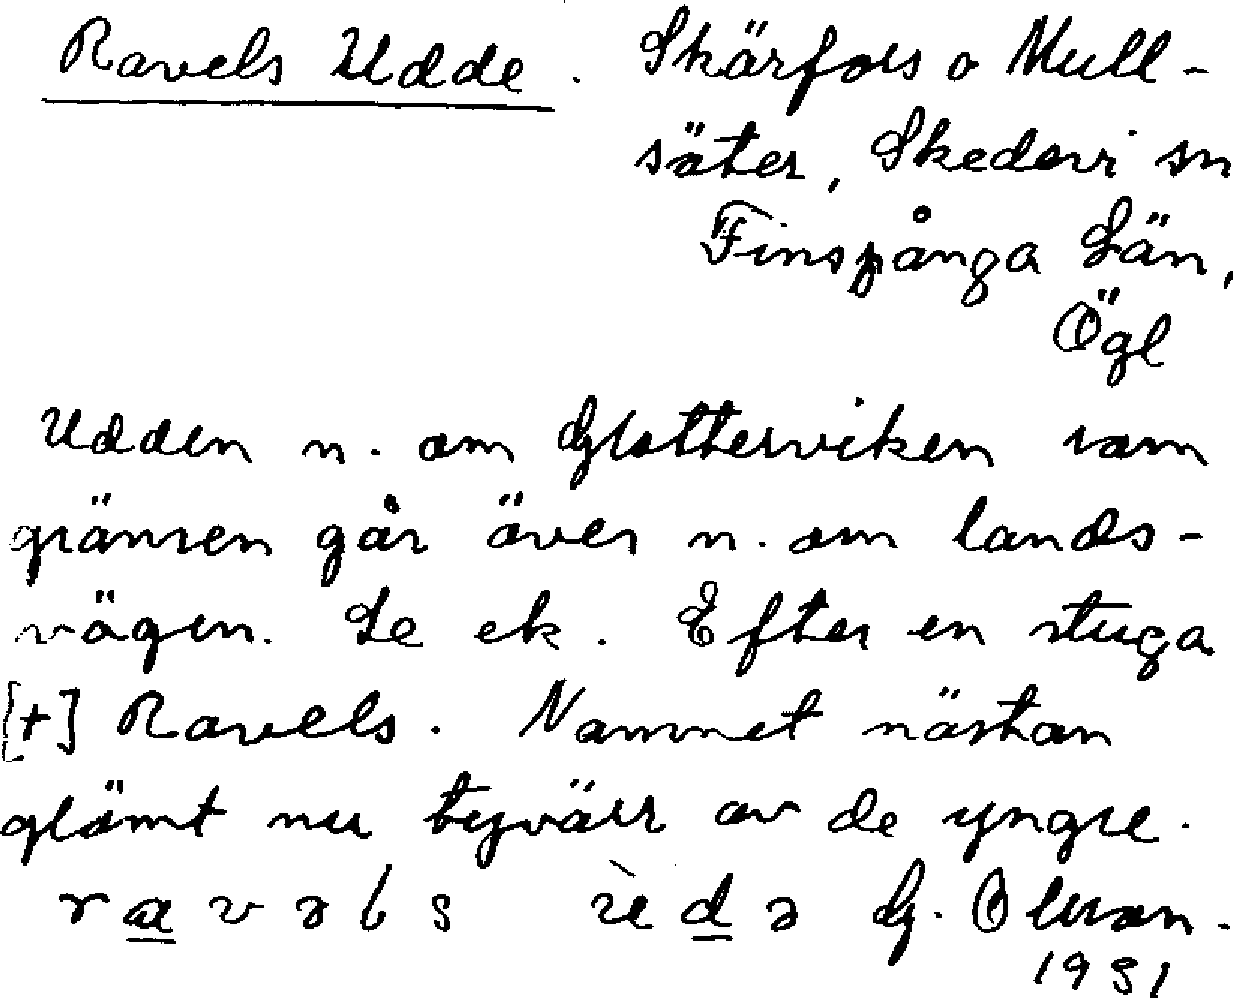 Ravels Udde. Skärfors o Mull-
säter, Skedevi sn
Finspånga Län,
Ögl
Udden n. om Glotterviken som
gränsen går över n. om lands-
vägen. Le ek. Efter en stuga
[+] Ravels. Namnet nästan
glömt nu tyvärr av de yngre.
ravəls ùdə G. Olsson.
1931